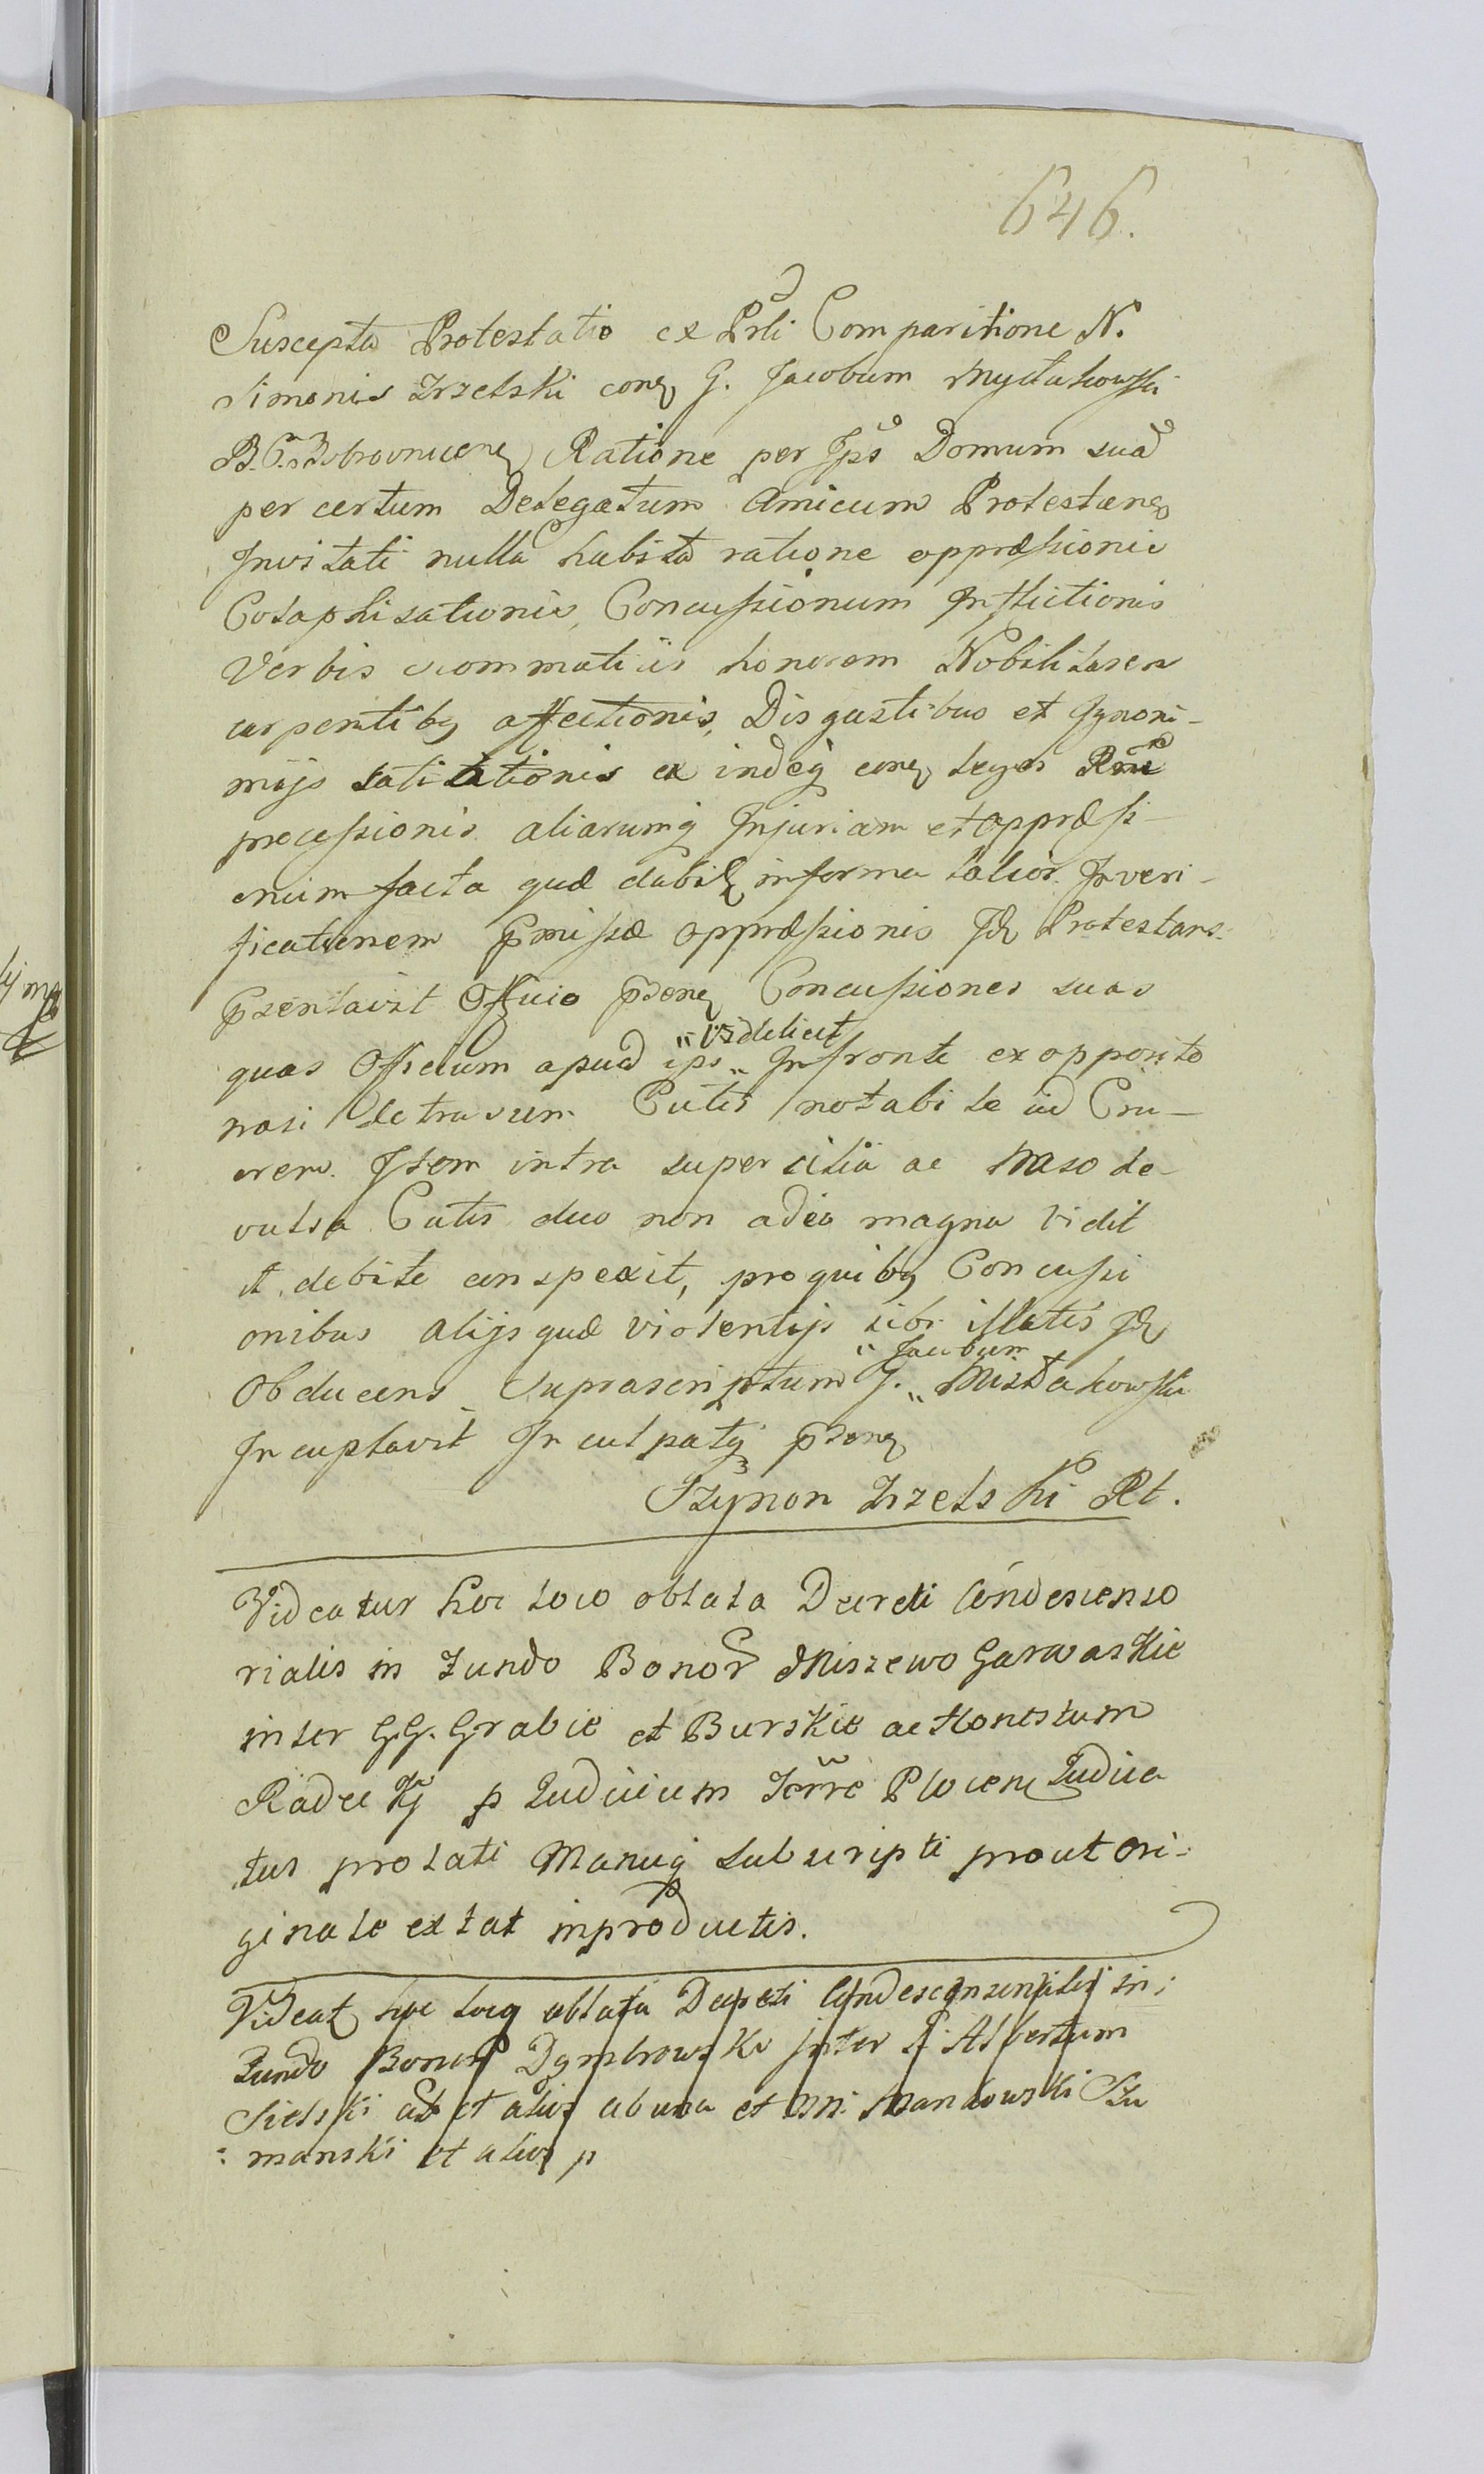 646.
Suscepta Protestatio ex Prli Comparitione N.
Simonis Trzelski conq G. Jacobum Mystakowski
B. C. Bobrovnicenq Ratione per Ips Domum suã
per certum Delegatum Amicum Protestanq
Invitati nulla habita ratione oppræssionis
Colaphisationis, Concussionum Inflictionis
Verbis scommaticis honorem Nobilitarem
carpentibq affectionis, Disgustibus et Ignomi-
nijs ex indeq conq leges
processionis aliarumq Injuriam et oppræssi-
onum facta quæ dabitq in forma latior. In veri-
ficationem Pmissæ oppræssionis Idq Protestans
Psentavit Officio psenq Concussiones suas
"videlicet
quas Officium apud ips " In fronte ex opposito
nasi detrasum Cutis notabile ad Cru-
orem. Item intra supercilia ac Naso de-
vulsa Cutis duo non adeo magna vidit
et debite conspexit, pro quibq Concussi
onibus alijsquæ violentijs sibi illatis Idq
" Jacobum
Obducens Suprascriptum G. " Mistakowski
Inculpavit Inculpatq psenq
Szymon Trzelski Rt.
Videatur hoc loco oblata Decreti Condescenso
rialis in Fundo Bonor Miszewo Garwaskie
inter GG. Grabie et Burskie ac Honestum
Radecki p Judicium Terre Plocenq Judica
tus prolati Manuq subscripti prout ori-
ginale extat in productis.
Videatq hoc loco oblata Decreti Condescensorialis in:
Fundo Bonor Dymbrowski Inter N. Albertum
Sielski ab et alios ab una et NN: Mankowski Szu
: manski et alios p